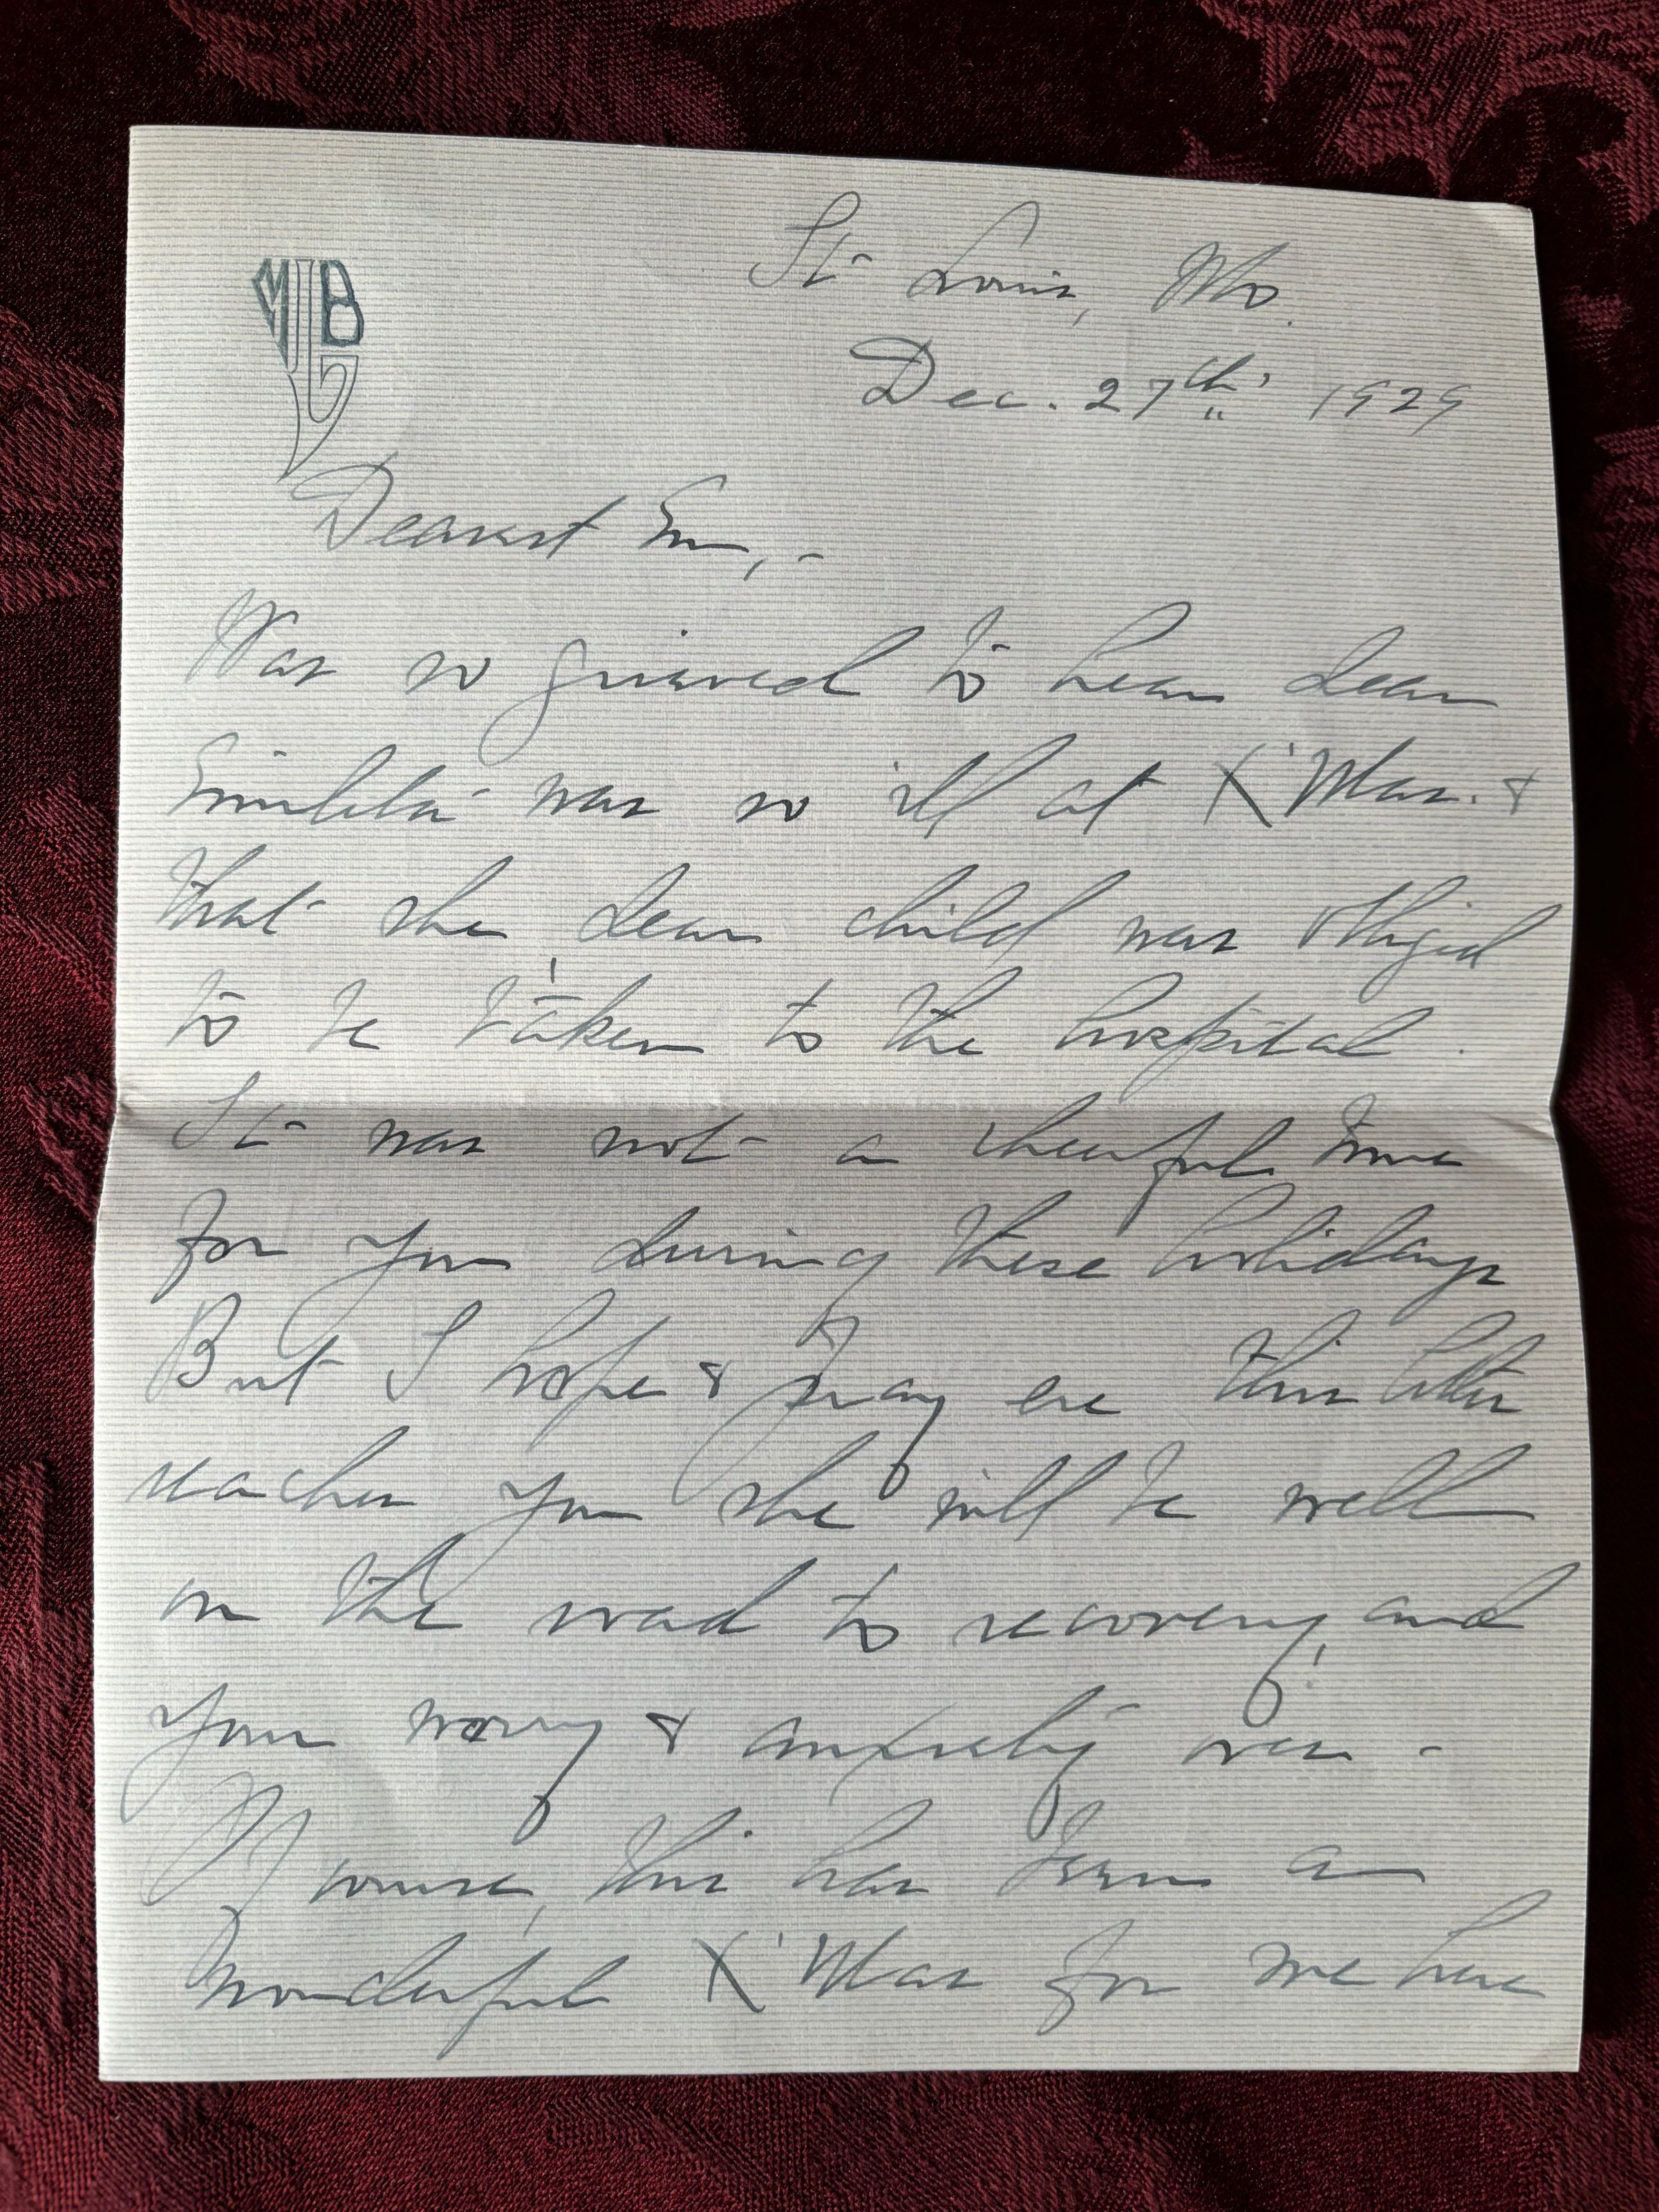 MLB
St. Louis, Mo.
Dec. 27th, 1929
Dearest Em,-
Was so grieved to hear dear
was so ill at X'Mas. &
that she dear child was obliged
to be taken to the hospital.
It was not a cheerful time
for you during these holidays
But I hope & pray ere this letter
reaches you she will be well
on the road to recovery and
your worry & anxiety over -
Of course, this has been a
wonderful X'Mas for me here